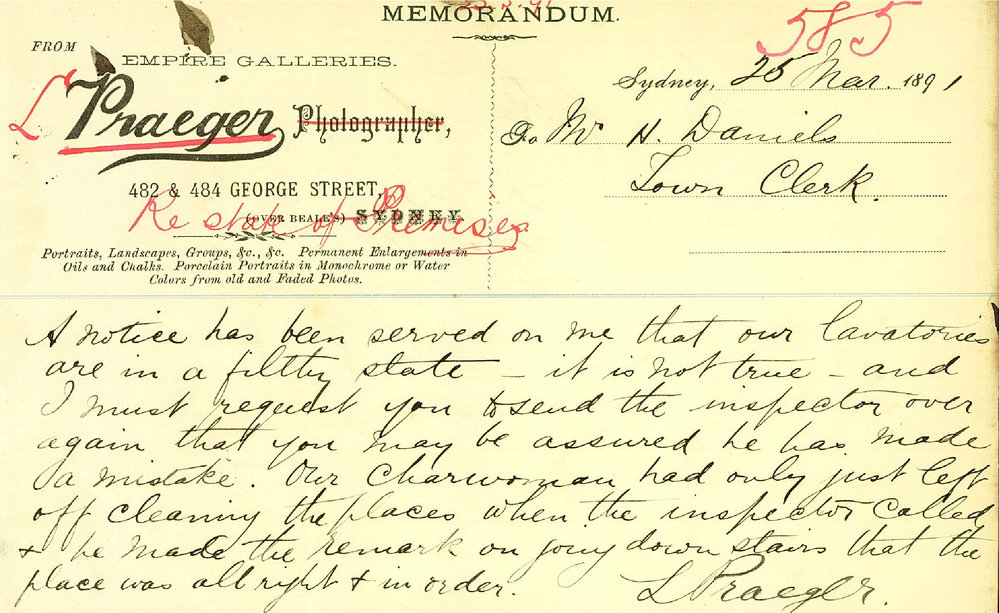 MEMORANDUM.
585
FROM
EMPIRE GALLERIES.
L Praeger Photographer,
482 & 484 GEORGE STREET,
(OVER BEALE'S) SYDNEY
Re state of Premises
Portraits, Landscapes, Groups, &c., &c. Permanent Enlargements in
Oils and Chalks. Porcelain Portraits in Monochrome or Water
Colors from old and Faded Photos.
Sydney, 25 Mar. 1891
To Mr H. Daniels
Town Clerk.
A notice has been served on me that our lavatories
are in a filthy state – it is not true – and
I must request you to send the inspector over
again that you may be assured he has made
a mistake. Our Charwoman had only just left
off cleaning the places when the inspector called
& he made the remark on going down stairs that the
place was all right & in order. L Praeger.